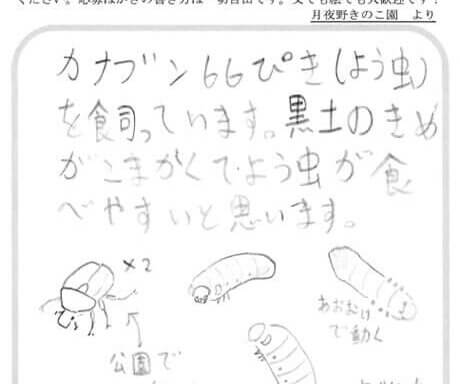 ください。応募はがきの書き方は一切自由です。文でも絵でも大歓迎です！
月夜野きのこ園 より
カナブン66ぴき(よう虫)
を飼っています。黒土のきめ
がこまかくてよう虫が食
べやすいと思います。
×2
あおむけ
で動く
公園で